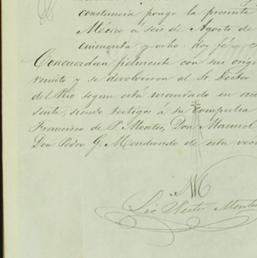 constancia pongo la presente
México á seis de Agosto de
cincuenta y ocho dos fs
Concuerdan fielmente con sus orig
remito y se devolvieron al Sr. Doctor
del Rio segun está mandado en
sente, siendo testigos á su compulsa
Francisco de P. Montes, Don Manuel
Don Pedro G. Maldonado de esta veci